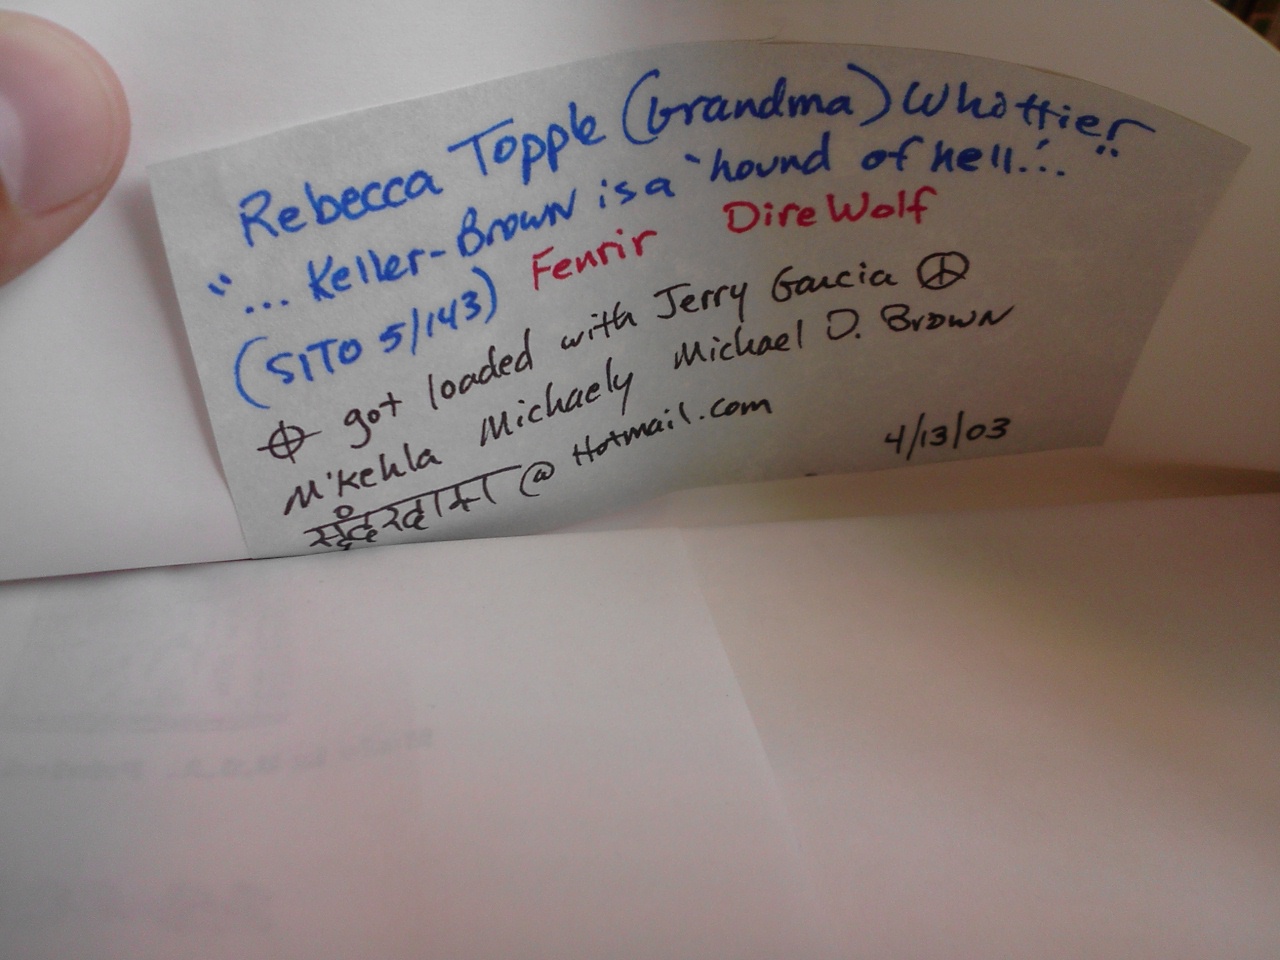 Rebecca Topple (Grandma) Whittier
"... Keller-Brown is a 'hound of hell.'..."
(SITO 5/143) Fenrir Dire Wolf
got loaded with Jerry Garcia ☮
M'Kehla Michaely Michael D. Brown
@ Hotmail.com
4/13/03